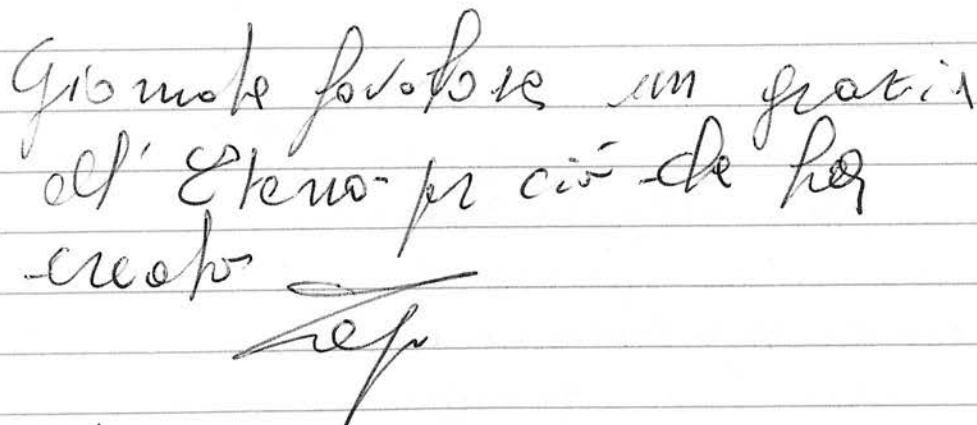 Giornata favolosa un grazie
all' Eterno per ciò che ha
creato